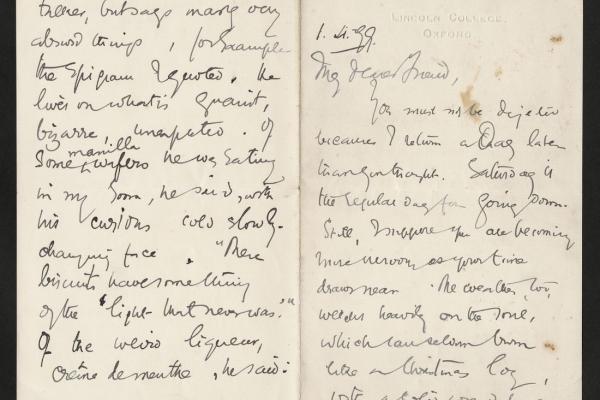 theles, but says many very
absurd things, for example
the Epigram I quoted. He
lives on what is quaint,
bizarre, unexpected. Of
Some manilla wafers he was Eating
in my Room, he said, with
his curious cold slowly-
changing face, "These
biscuits have something
of the 'light that never was.'"
Of the weird liqueur,
Crème de menthe, he said:
LINCOLN COLLEGE,
OXFORD.
My dear Friend,
You must not be dejected
because I return a Day later
than you thought. Saturday is
the regular day for going Down.
Still, I suppose you are becoming
more nervous as your time
draws near. The weather, too,
weighs heavily on the soul,
which can seldom burn
like a Christmas log,